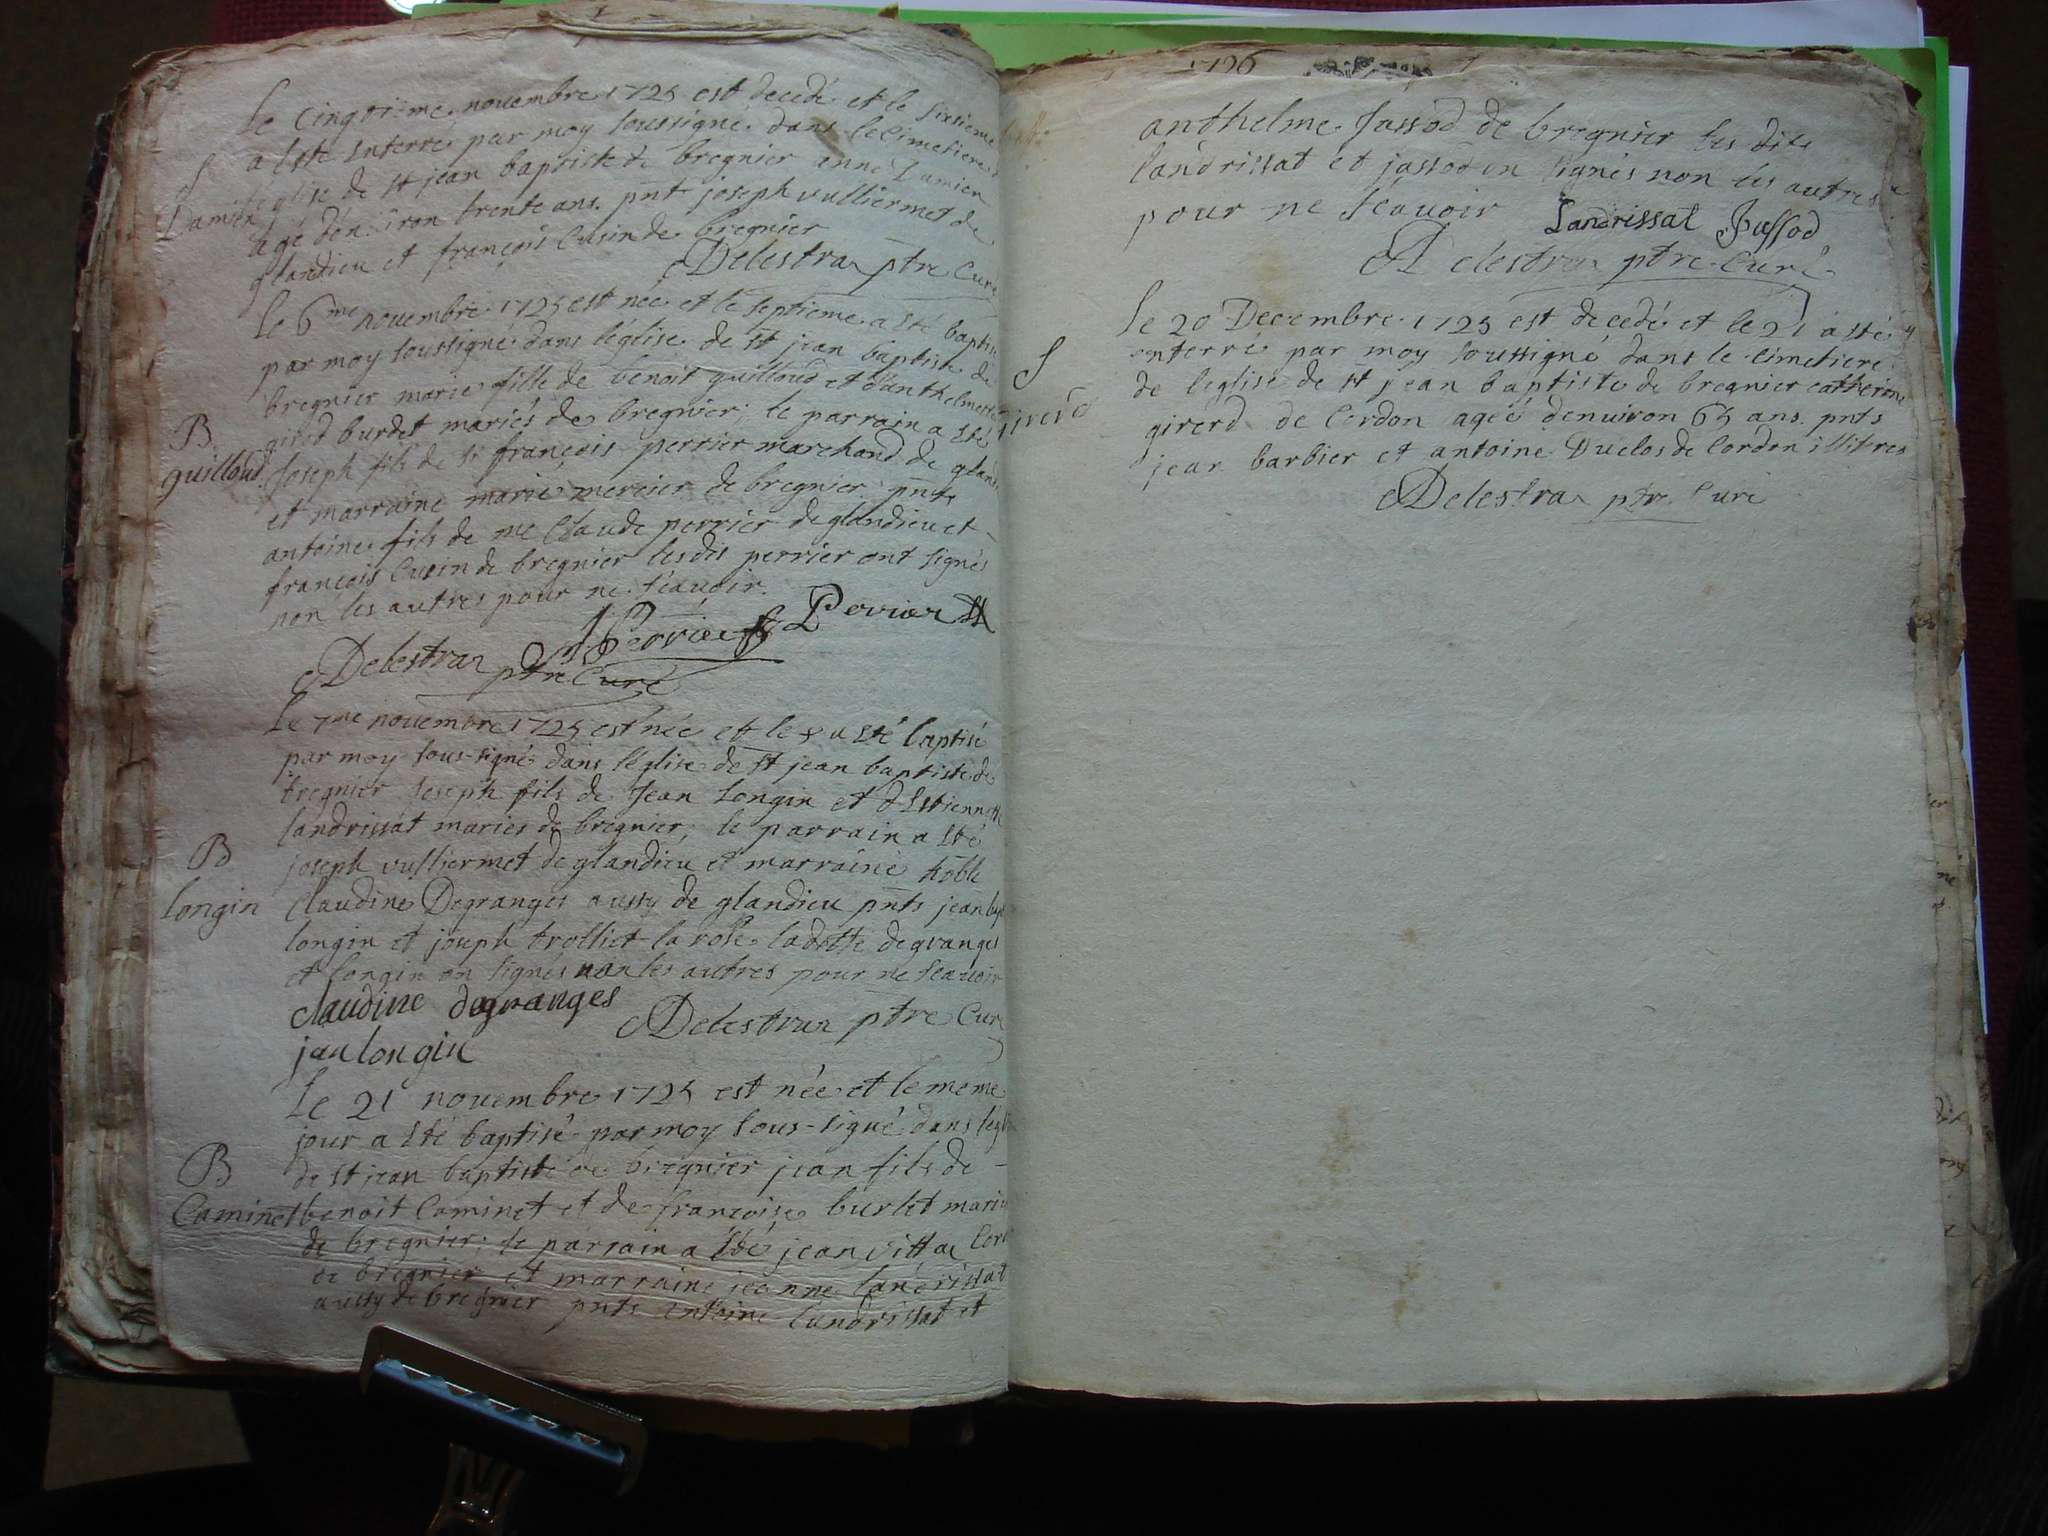 Le cinqtieme novembre 1725 est decedé et le sixsieme
a esté enterré par moy soussigné dans le cimetiere
S
l'eglise de st jean baptiste de bregnier anne Damien
Damien
agé denviron trente ans. pnt joseph vulliermet de
glandieu et françois Cusin de bregnier
Delestra ptre Curé
Le 6me novembre 1725 est née et le septieme a esté baptisé
par moy soussigné dans l'eglise de st jean baptiste de
bregnier marie fille de benoit guilloud et d'anthelmette
B
guilloud
girod burdet mariés de bregnier; le parrain a esté
Joseph fils de sr françois perrier marchand de gland
et marraine marie mercier de bregnier pnts
antoine fils de me Claude perrier de glandieu et
françois Cusin de bregnier lesdis perrier ont signés
non les autres pour ne sçavoir.
Perrier
Delestra ptre Curé
Le 7me novembre 1725 est née et le 8 a esté baptisé
par moy sous-signé dans l'eglise de st jean baptiste de
bregnier Joseph fils de Jean Longin et d'Estiennette
landrissat mariés de bregnier; le parrain a esté
B
longin
joseph vulliermet de glandieu et marraine noble
claudine Degranges aussy de glandieu pnts jean bapt
longin et joseph trolliet la rose ladette degranges
et longin on signés non les autres pour ne sçavoir
claudine degranges
Delestra ptre Curé
jan longin
Le 21 novembre 1725 est née et le meme
jour a esté baptisé par moy sous-signé dans legli
de st jean baptiste de bregnier jean fils de
B
Caminet
benoit Caminet et de françoise burlet marié
de bregnier; le parrain a esté jean vitta
de bregnier et marraine jeanne landrissat
aussy de bregnier pnts entoine landrissat et
1726
anthelme Jassod de bregnier les dits
landrissat et jassod on signés non les autres
pour ne sçavoir Landrissat Jassod
Delestra ptre Curé
Le 20 Decembre 1725 est decedé et le 21 a esté
enterré par moy soussigné dans le cimetiere
S
girerd
de l'eglise de st jean baptiste de bregnier catherine
girerd de Cordon ageé denuiron 65 ans. pnts
jean barbier et antoine Duclos de Cordon illitres
Delestra ptre Curé